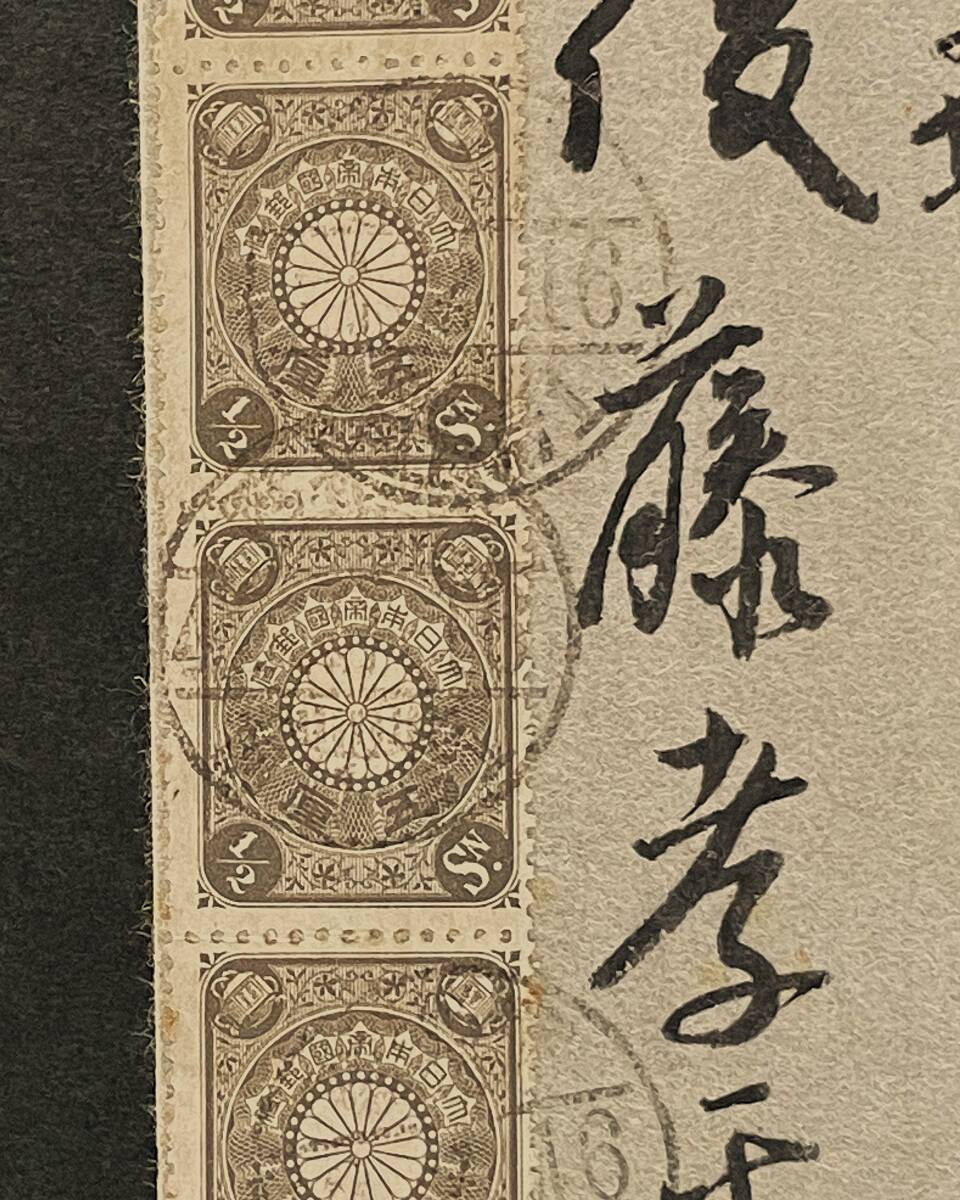 後藤孝
大日本帝國郵便
五厘
1/2 Sn.
16
大日本帝國郵便
五厘
1/2 Sn.
大日本帝國郵便
16